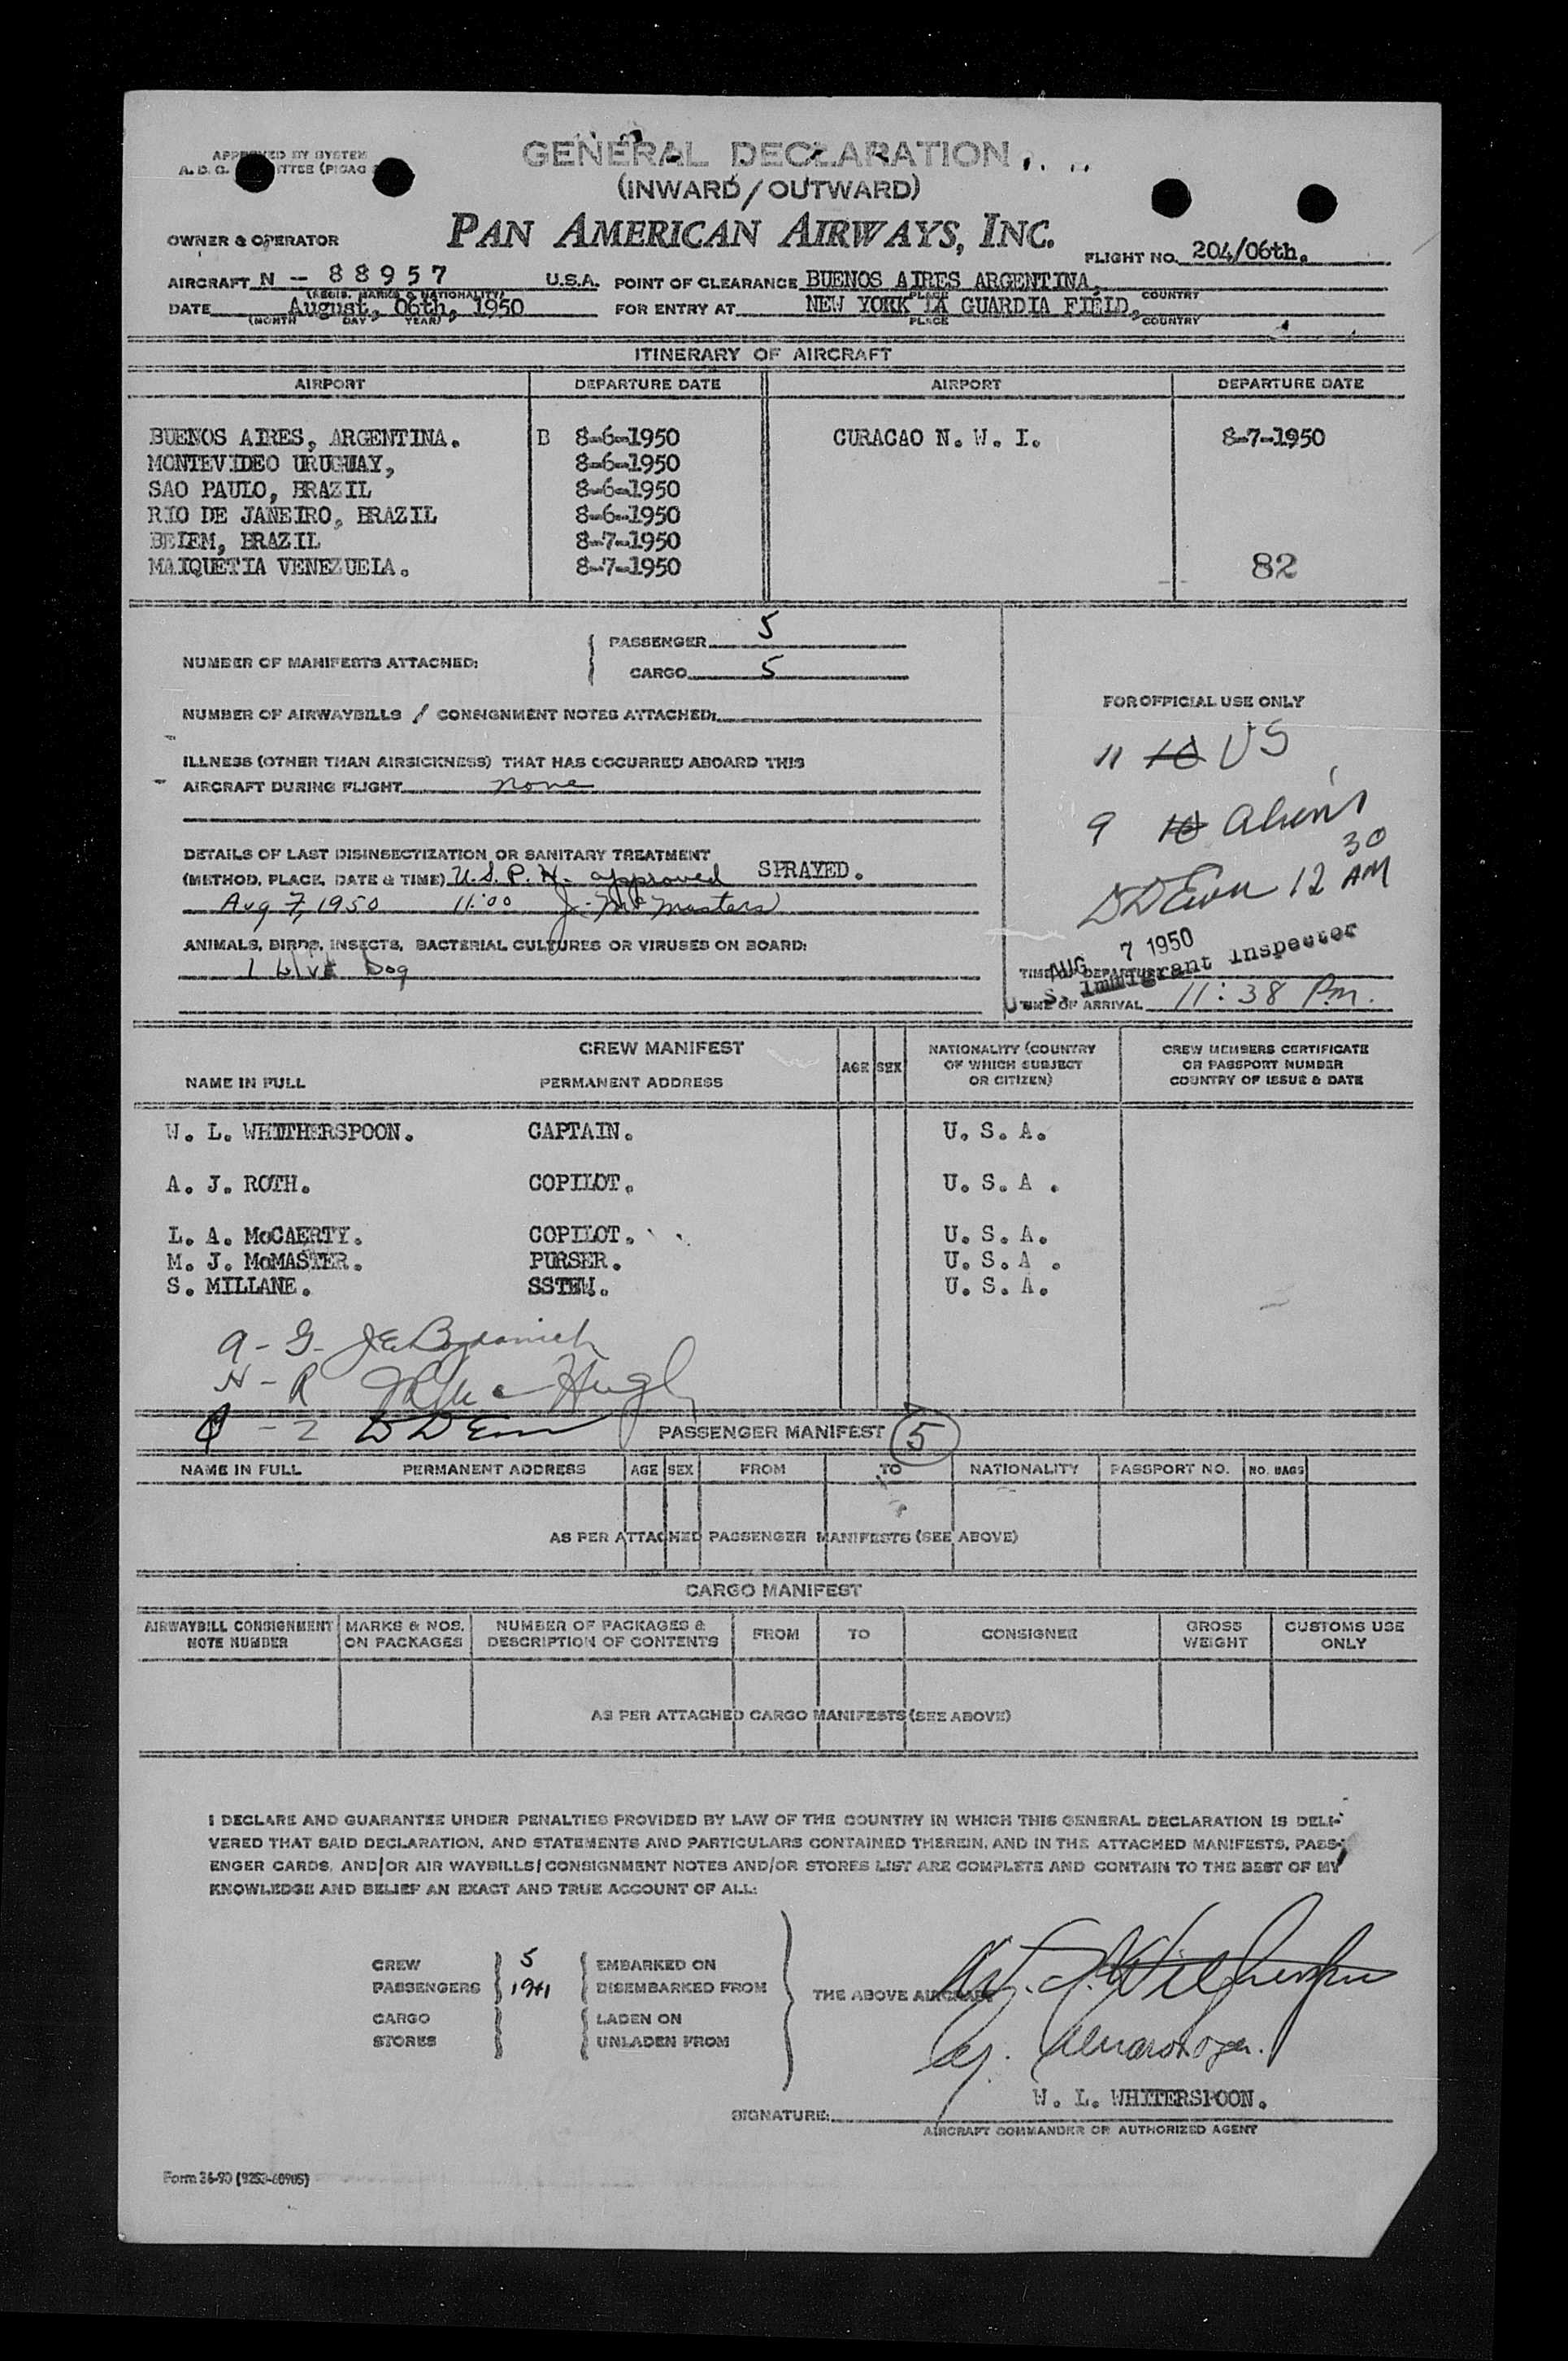 GENERAL DECLARATION
(INWARD/OUTWARD)
PAN AMERICAN AIRWAYS, INC.
APPROVED BY SYSTEM
A. D. C. (PICAO
OWNER & OPERATOR
FLIGHT NO. 204/06th.
AIRCRAFT N - 88957 U.S.A. POINT OF CLEARANCE BUENOS AIRES ARGENTINA,
(REGIS. MARKS & NATIONALITY) PLACE COUNTRY
DATE August, 06th, 1950 FOR ENTRY AT NEW YORK LA GUARDIA FIELD,
(MONTH DAY YEAR) PLACE COUNTRY
ITINERARY OF AIRCRAFT
AIRPORT DEPARTURE DATE AIRPORT DEPARTURE DATE
BUENOS AIRES, ARGENTINA. B 8-6-1950 CURACAO N. W. I. 8-7-1950
MONTEVIDEO URUGUAY, 8-6-1950
SAO PAULO, BRAZIL 8-6-1950
RIO DE JANEIRO, BRAZIL 8-6-1950
BELEM, BRAZIL 8-7-1950
MAIQUETIA VENEZUELA. 8-7-1950 82
NUMBER OF MANIFESTS ATTACHED:
PASSENGER 5
CARGO 5
NUMBER OF AIRWAYBILLS / CONSIGNMENT NOTES ATTACHED:
ILLNESS (OTHER THAN AIRSICKNESS) THAT HAS OCCURRED ABOARD THIS
AIRCRAFT DURING FLIGHT none
DETAILS OF LAST DISINSECTIZATION OR SANITARY TREATMENT
(METHOD, PLACE, DATE & TIME) U.S.P.H. approved SPRAYED.
Aug 7, 1950 11:00 J. McMasters
ANIMALS, BIRDS, INSECTS, BACTERIAL CULTURES OR VIRUSES ON BOARD:
1 Live Dog
FOR OFFICIAL USE ONLY
11 10 US
9 10 Aliens
12 30 AM
AUG 7 1950
TIME OF DEPARTURE
U. S. Immigrant Inspector
TIME OF ARRIVAL 11:38 P.m.
CREW MANIFEST
NAME IN FULL PERMANENT ADDRESS AGE SEX
NATIONALITY (COUNTRY
OF WHICH SUBJECT
OR CITIZEN)
CREW MEMBERS CERTIFICATE
OR PASSPORT NUMBER
COUNTRY OF ISSUE & DATE
W. L. WHITHERSPOON. CAPTAIN. U. S. A.
A. J. ROTH. COPILOT. U. S. A .
L. A. McCAERTY. COPILOT. U. S. A.
M. J. McMASTER. PURSER. U. S. A .
S. MILLANE. SSTEW. U. S. A.
PASSENGER MANIFEST 5
NAME IN FULL PERMANENT ADDRESS AGE SEX FROM TO NATIONALITY PASSPORT NO. NO. BAGS
AS PER ATTACHED PASSENGER MANIFESTS (SEE ABOVE)
CARGO MANIFEST
AIRWAYBILL CONSIGNMENT
NOTE NUMBER
MARKS & NOS.
ON PACKAGES
NUMBER OF PACKAGES &
DESCRIPTION OF CONTENTS
FROM TO CONSIGNEE
GROSS
WEIGHT
CUSTOMS USE
ONLY
AS PER ATTACHED CARGO MANIFESTS (SEE ABOVE)
I DECLARE AND GUARANTEE UNDER PENALTIES PROVIDED BY LAW OF THE COUNTRY IN WHICH THIS GENERAL DECLARATION IS DELI-
VERED THAT SAID DECLARATION, AND STATEMENTS AND PARTICULARS CONTAINED THEREIN, AND IN THE ATTACHED MANIFESTS, PASS-
ENGER CARDS, AND/OR AIR WAYBILLS/CONSIGNMENT NOTES AND/OR STORES LIST ARE COMPLETE AND CONTAIN TO THE BEST OF MY
KNOWLEDGE AND BELIEF AN EXACT AND TRUE ACCOUNT OF ALL:
CREW 5 EMBARKED ON
PASSENGERS 19+1 DISEMBARKED FROM
THE ABOVE AIRCRAFT
CARGO LADEN ON
STORES UNLADEN FROM
W. L. WHITERSPOON.
SIGNATURE:
AIRCRAFT COMMANDER OR AUTHORIZED AGENT
Form 36-90 (9253-60905)